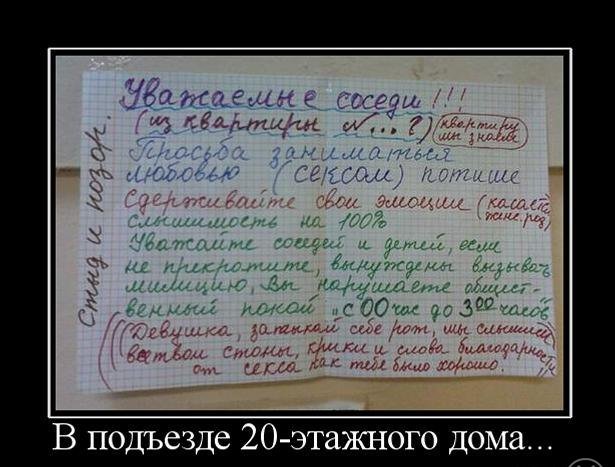 Уважаемые соседи!!!
(из квартиры №...?) (квартиру мы знаем)
Просьба заниматься
любовью (сексом) потише
Сдерживайте свои эмоции (касается женс. род)
слышимость на 100%
Уважайте соседей и детей, если
не прекратите, вынуждены вызывать
милицию, Вы нарушаете общест-
венный покой "с 00 час до 3 00 часов"
(((Девушка, затыкай себе рот, мы слышим
все твои стоны, крики и слова благодарности
от секса как тебе было хорошо.
Стыд и позор.
В подъезде 20-этажного дома...